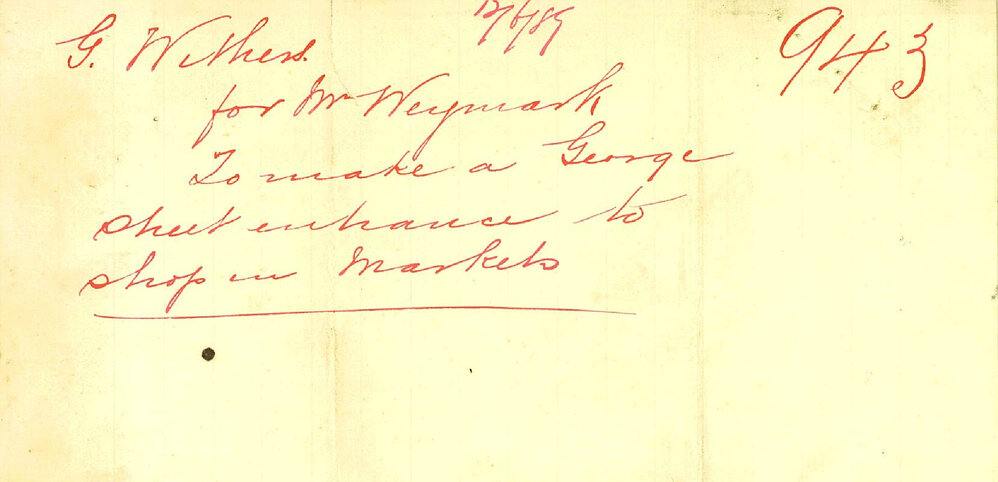 12/6/89
943
G. Withers.
for Mr Weymark
To make a George
street entrance to
shop in Markets